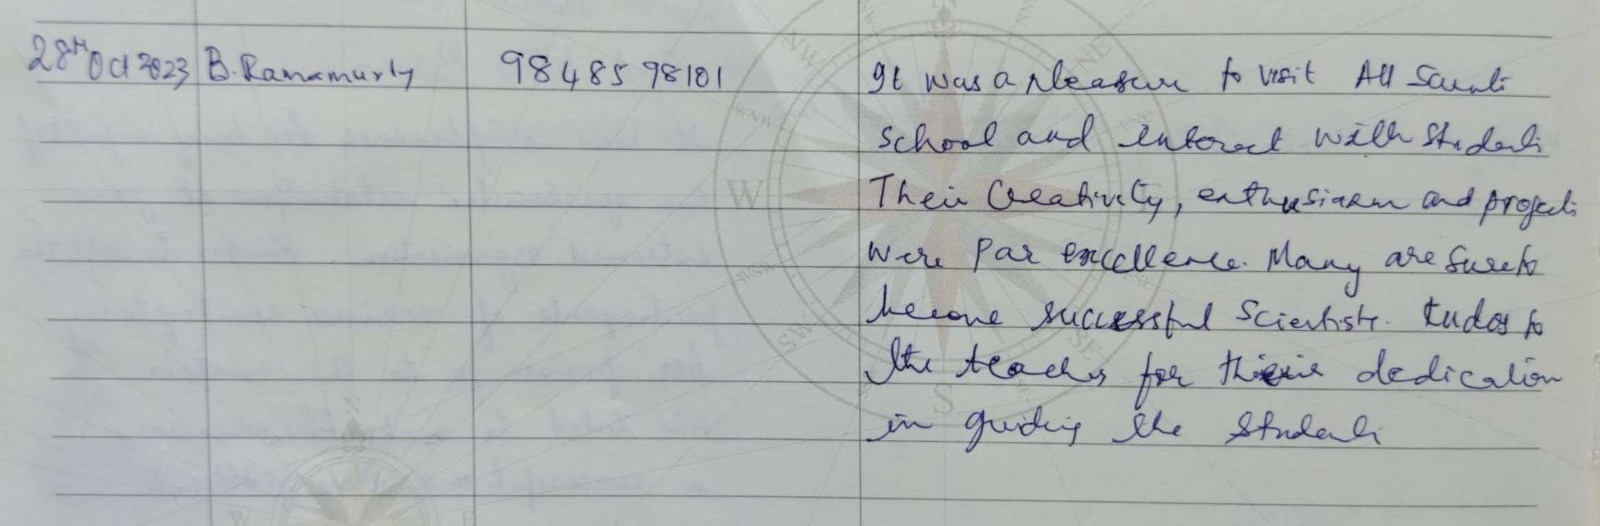 28th Oct 2023 B. Ramamurty 98485 98101 It was a pleasure to visit All Saints
school and interact with students
Their Creativity, enthusiasm and projects
were par excellence. Many are sure to
become successful Scientists. Kudos to
the teachers for their dedication
in guiding the students
W
NW
NNW
NNE
NE
WNW
SW
SE
S
N
W
E